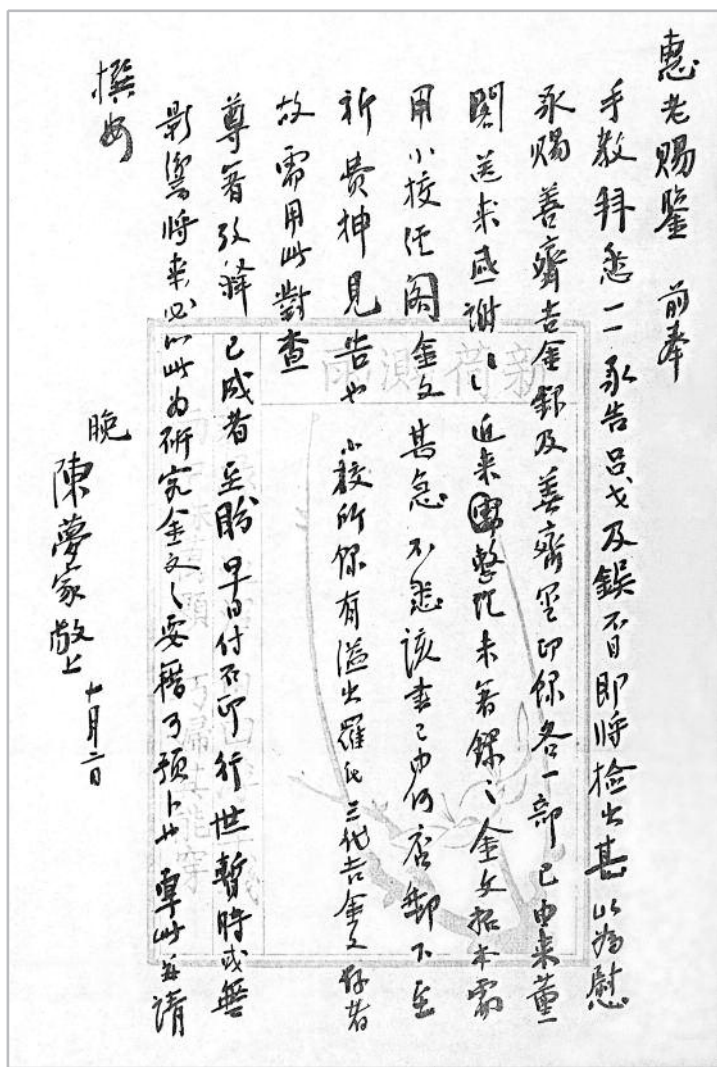 惠老賜鑒　前奉
手教拜悉一一承告吕戈及鎩不日即將檢出甚以為慰
承賜善齋吉金錄及善齋璽印錄各一部已由來董
閣送來感謝〻近來整比未著錄之金文拓本需
用小校經閣金文甚急不悉該書已由何店郵下至
祈費神見告也小校所錄有溢出羅氏三代吉金文存者
故需用此對查
尊著攷釋已成者至盼早日付石印行世暫時或無
影響將來必以此為研究金文之要籍可預卜也專此並請
撰安
晚
陳夢家敬上　十月二日
新荷測雨